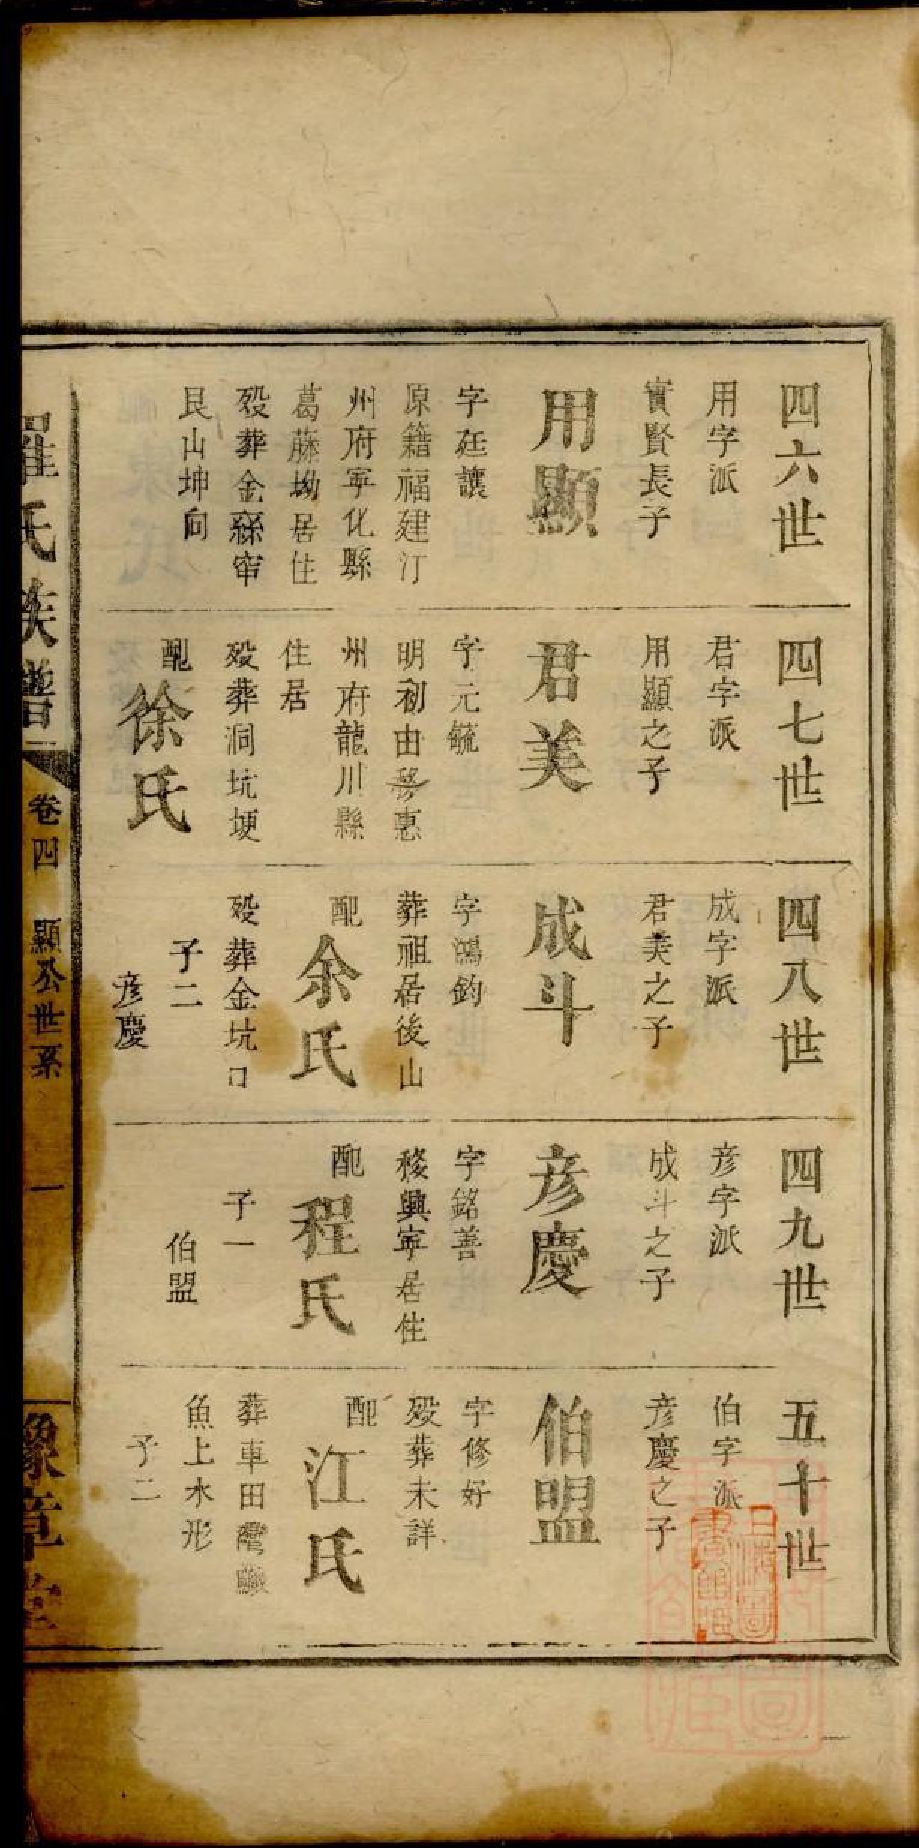 四六世
用字派
實賢長子
用顯
字廷讓
原籍福建汀
州府寕化縣
葛藤坳居住
殁葬金窜
艮山坤向
四七世
君字派
用顯之子
君美
字元毓
明初由移惠
州府龍川縣
住居
殁葬洞坑埂
配
徐氏
四八世
成字派
君美之子
成斗
字鴻鈞
葬祖居後山
配
余氏
殁葬金坑口
子二
彦慶
四九世
彦字派
成斗之子
彦慶
字銘善
移興寕居住
配
程氏
子一
伯盟
五十世
伯字派
彦慶之子
伯盟
字修好
殁葬未詳
配
江氏
葬車田灣
魚上水形
子二
羅氏族譜
卷四
顯公世系
一
豫章堂